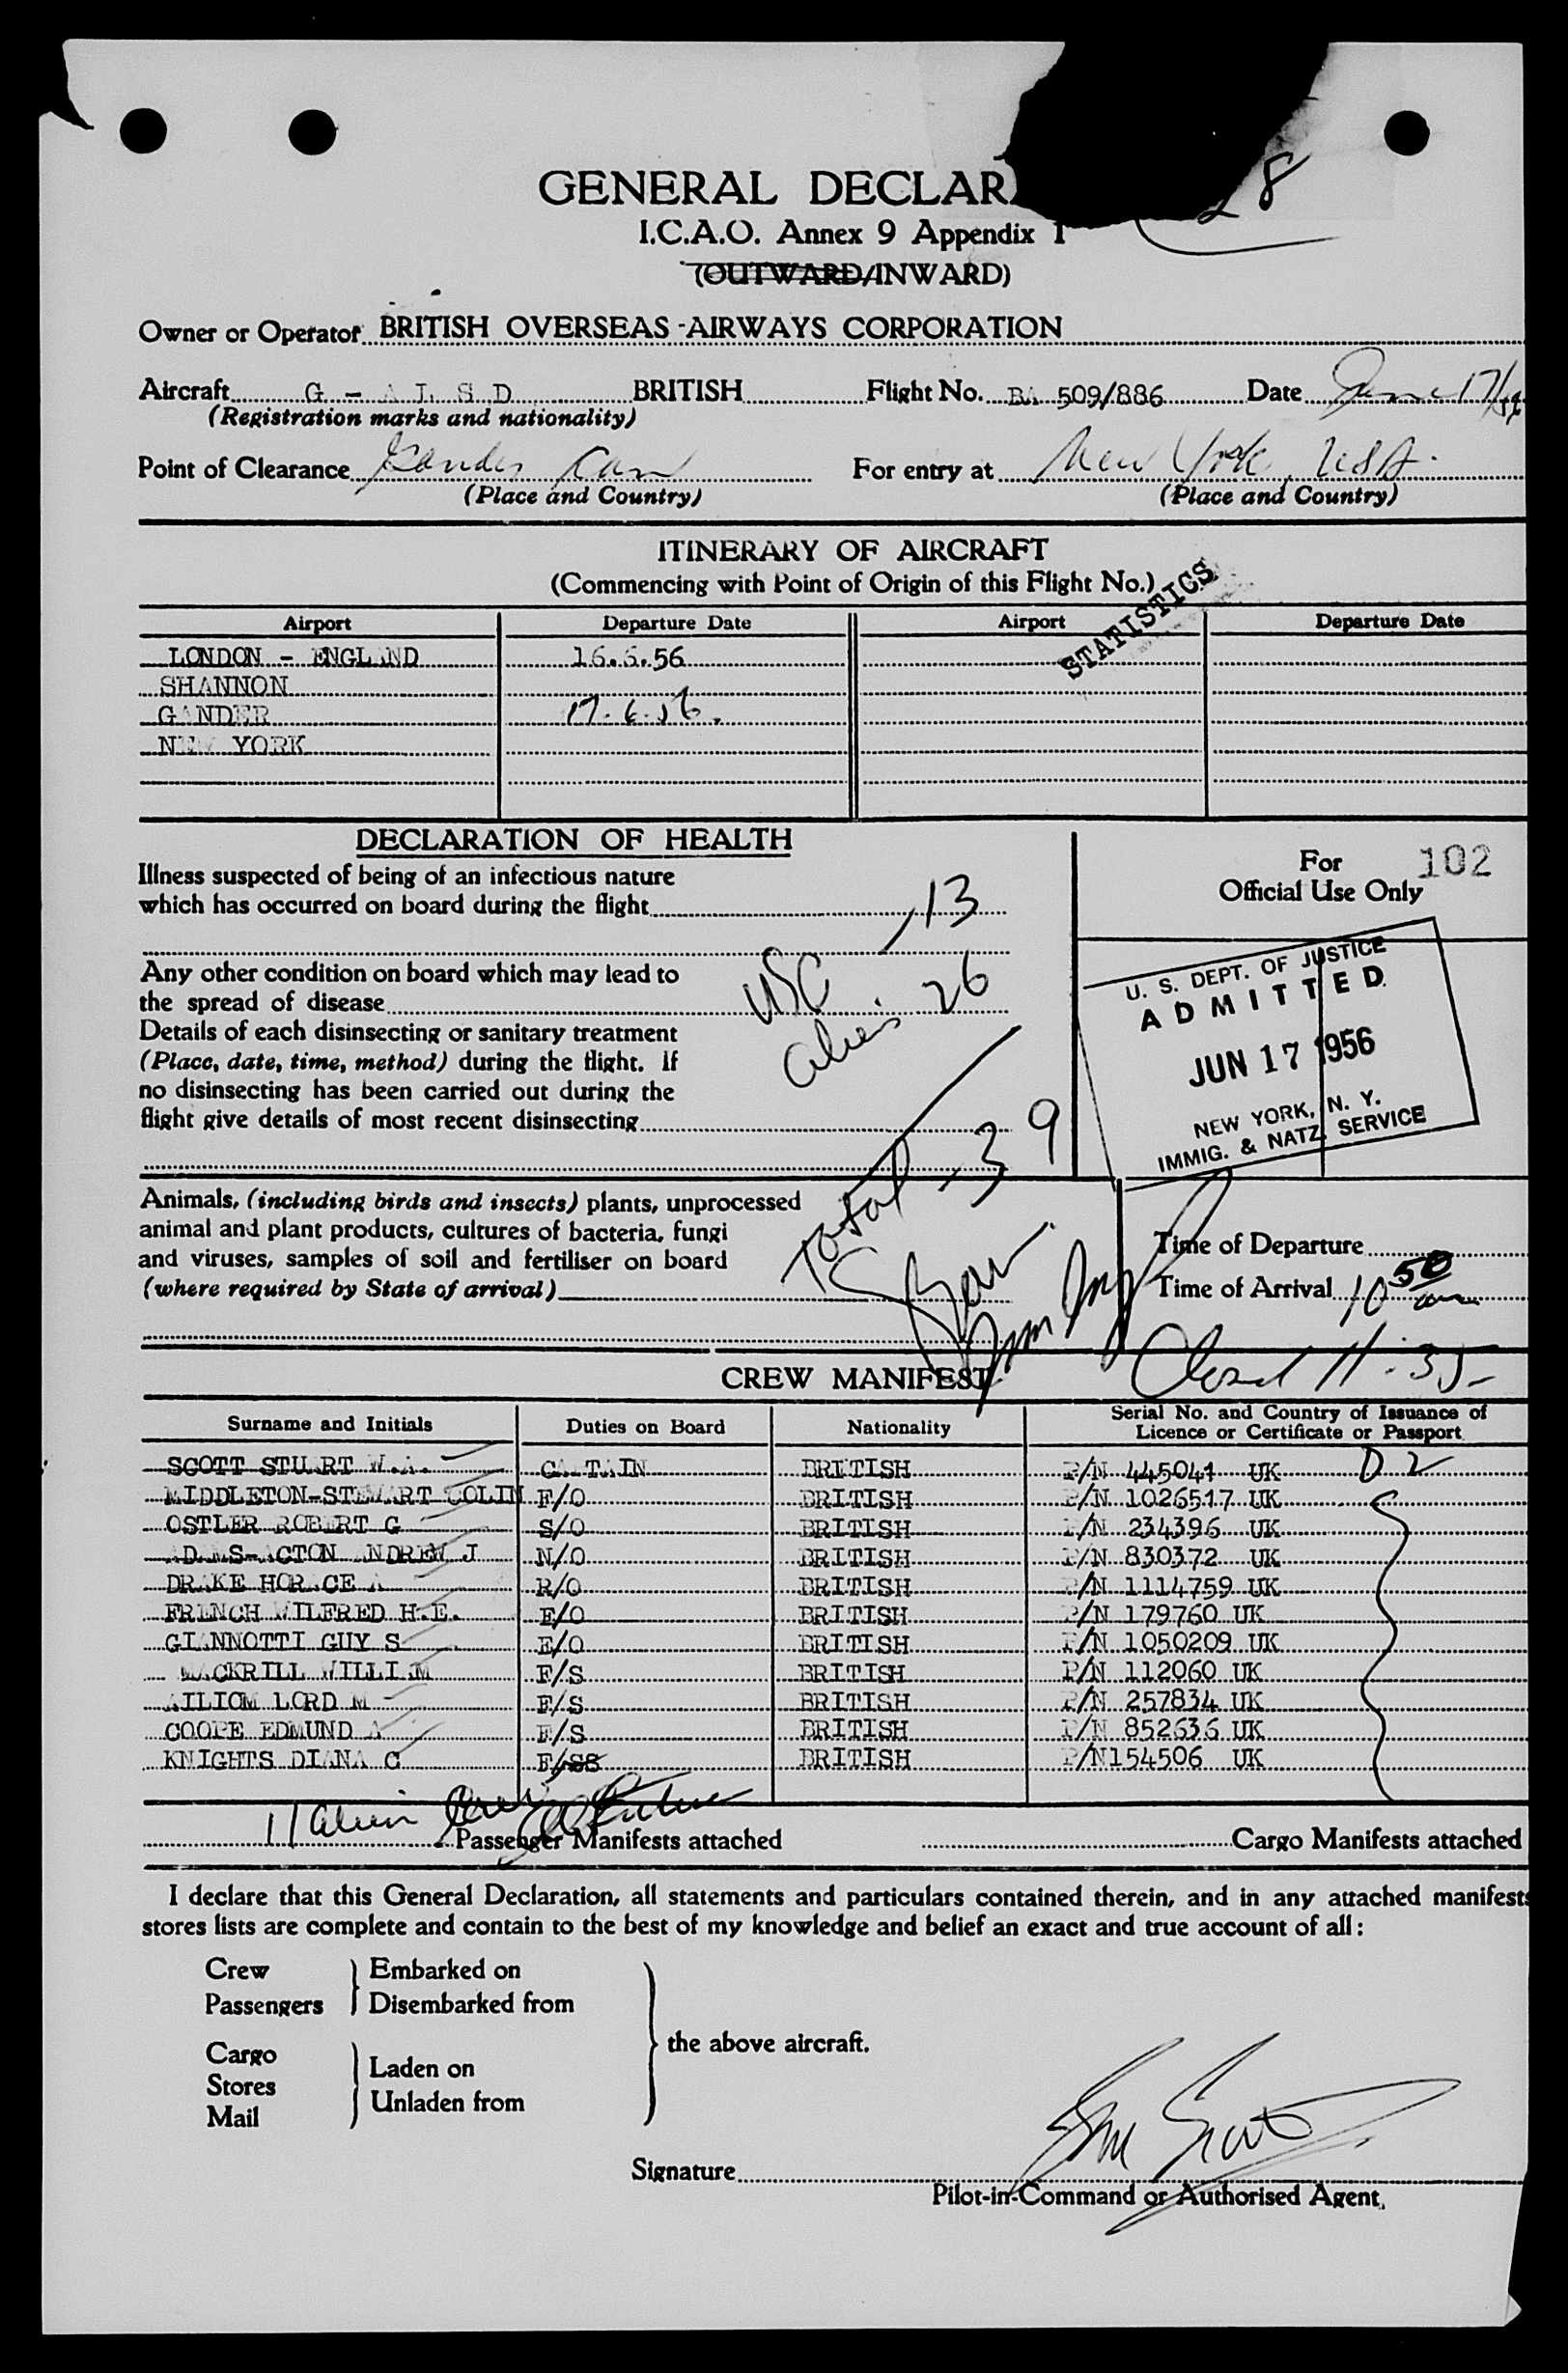 28
GENERAL DECLAR
I.C.A.O. Annex 9 Appendix 1
(OUTWARD/INWARD)
Owner or Operator BRITISH OVERSEAS AIRWAYS CORPORATION
Aircraft G - A L S D BRITISH Flight No. BA 509/886 Date June 17/56
(Registration marks and nationality)
Point of Clearance Gander Can For entry at New York, USA.
(Place and Country) (Place and Country)
ITINERARY OF AIRCRAFT
(Commencing with Point of Origin of this Flight No.)
STATISTICS
Airport Departure Date Airport Departure Date
LONDON - ENGLAND 16.6.56
SHANNON
GANDER 17.6.56.
NEW YORK
DECLARATION OF HEALTH
For
Official Use Only 102
Illness suspected of being of an infectious nature
which has occurred on board during the flight
USC - 13
Any other condition on board which may lead to
the spread of disease
Alien. 26
Details of each disinsecting or sanitary treatment
(Place, date, time, method) during the flight. If
no disinsecting has been carried out during the
flight give details of most recent disinsecting
Total - 39
U. S. DEPT. OF JUSTICE
ADMITTED
JUN 17 1956
NEW YORK, N. Y.
IMMIG. & NATZ. SERVICE
Animals, (including birds and insects) plants, unprocessed
animal and plant products, cultures of bacteria, fungi
and viruses, samples of soil and fertiliser on board
(where required by State of arrival)
Time of Departure
Time of Arrival 10 50 am
Closed 11:35
CREW MANIFEST
Surname and Initials Duties on Board Nationality Serial No. and Country of Issuance of
Licence or Certificate or Passport
SCOTT STUART W.A. CAPTAIN BRITISH P/N 445041 UK D 2
MIDDLETON-STEWART COLIN F/O BRITISH P/N 1026517 UK
OSTLER ROBERT G S/O BRITISH P/N 234396 UK
ADAMS-ACTON ANDREW J N/O BRITISH P/N 830372 UK
DRAKE HORACE A R/O BRITISH P/N 1114759 UK
FRENCH WILFRED H.E. E/O BRITISH P/N 179760 UK
GIANNOTTI GUY S E/O BRITISH P/N 1050209 UK
MACKRILL WILLIAM F/S BRITISH P/N 112060 UK
LORD M F/S BRITISH P/N 257834 UK
COOPE EDMUND A F/S BRITISH P/N 852636 UK
KNIGHTS DIANA C F/SS BRITISH P/N154506 UK
11 Alien Crew
Passenger Manifests attached Cargo Manifests attached
I declare that this General Declaration, all statements and particulars contained therein, and in any attached manifests
stores lists are complete and contain to the best of my knowledge and belief an exact and true account of all:
Crew Embarked on
Passengers Disembarked from
the above aircraft.
Cargo
Stores Laden on
Mail Unladen from
Signature
Pilot-in-Command or Authorised Agent,